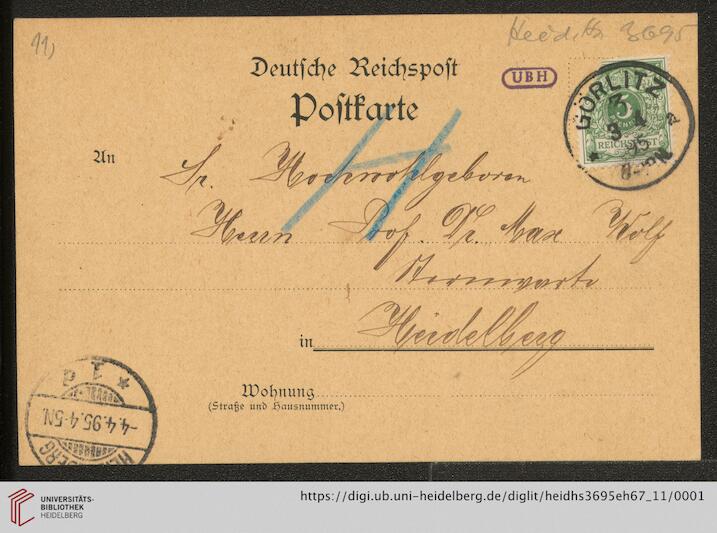 11)
Heid. Hs 3695
Deutsche Reichspost
Postkarte
UBH
GÖRLITZ
3
3 4
95
REICHSPOST
An
Sr. Hochwohlgeboren
Herrn Prof. Dr. Max Wolf
Sternwarte
in Heidelberg
Wohnung
(Straße und Hausnummer.)
HEIDELBERG
-4.4.95.4-5N.
* 1 d
UNIVERSITÄTS-
BIBLIOTHEK
HEIDELBERG
https://digi.ub.uni-heidelberg.de/diglit/heidhs3695eh67_11/0001